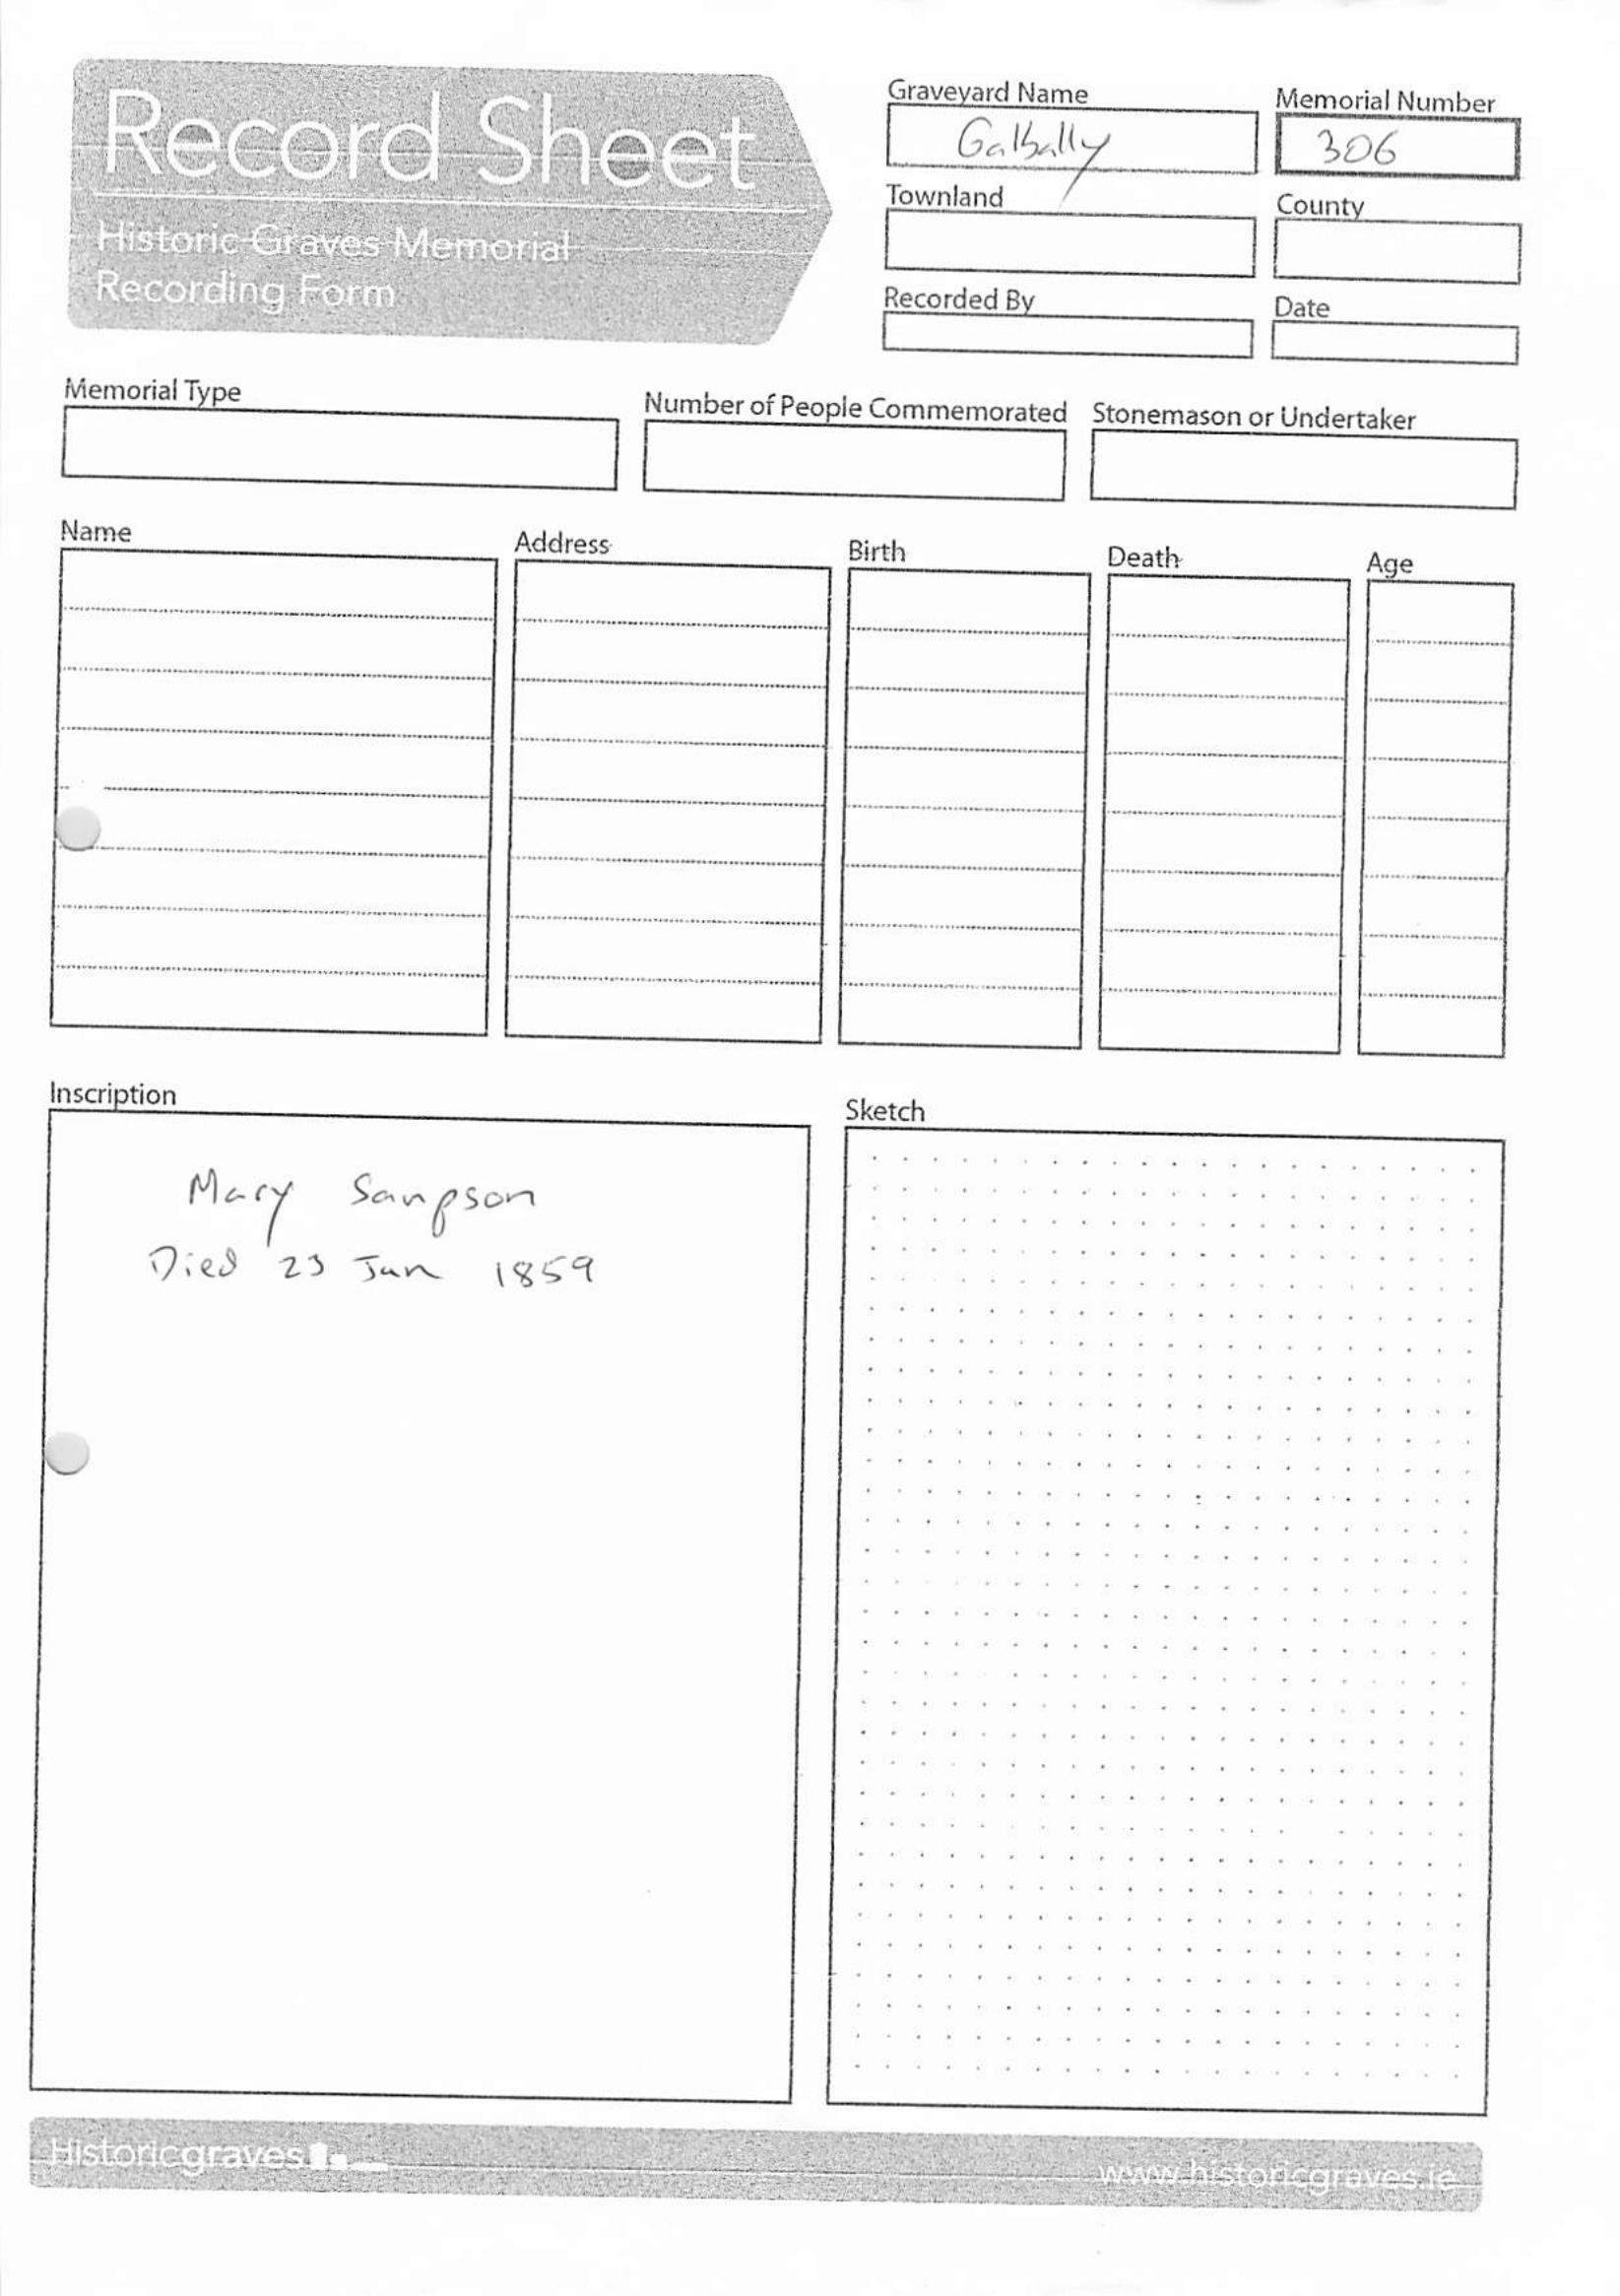 Record Sheet
Historic Graves Memorial
Recording Form
Graveyard Name
Galbally
Memorial Number
306
Townland
County
Recorded By
Date
Memorial Type
Number of People Commemorated
Stonemason or Undertaker
Name
Address
Birth
Death
Age
Inscription
Mary Sampson
Died 23 Jan 1859
Sketch
Historicgraves
www.historicgraves.ie